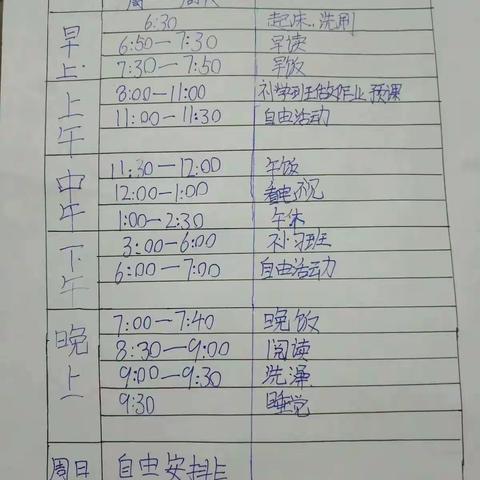 早上 6:30 起床、洗刷
6:50—7:30 早读
7:30—7:50 早饭
上午 8:00—11:00 补学班做作业 预课
11:00—11:30 自由活动
中午 11:30—12:00 午饭
12:00—1:00 看电视
1:00—2:30 午休
下午 3:00—6:00 补习班
6:00—7:00 自由活动
晚上 7:00—7:40 晚饭
8:30—9:00 阅读
9:00—9:30 洗澡
9:30 睡觉
周日 自由安排